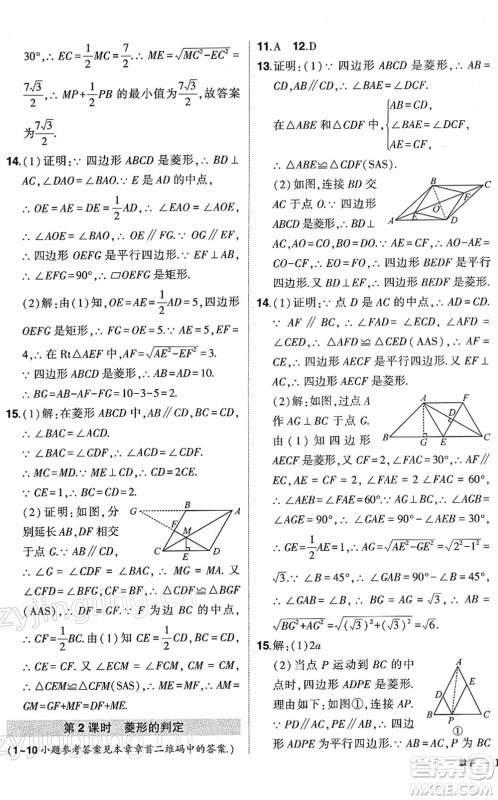 30°,∴EC=1/2MC=7/2.∴ME=√(MC²-EC²)=
7√3/2,∴MP+1/2PB的最小值为7√3/2,故答案
为7√3/2.
14.(1)证明:∵四边形ABCD是菱形,∴BD⊥
AC,∠DAO=∠BAO.∵E是AD的中点,
∴OE=AE=DE=1/2AD.∴∠EAO=
∠AOE.∴∠AOE=∠BAO.∴OE∥FG.∵
OG∥EF,∴四边形OEFG是平行四边形.∵EF⊥AB,
∴∠EFG=90°,∴▱OEFG是矩形.
(2)解:由(1)知,OE=AE=1/2AD=5,四边形
OEFG是矩形,∴FG=OE=5.∵EF⊥
AB,∴在Rt△AEF中,AF=√(AE²-EF²)=3.
∵四边形ABCD是菱形,∴AB=AD=10.
∴BG=AB-AF-FG=10-3-5=2.
15.(1)解:在菱形ABCD中,AB∥CD,BC=CD,
∴∠BAC=∠MCD.∵∠BAC=∠MDC,∴
∠MCD=∠MDC.∵ME⊥CD,∴CD=2CE.
∵CE=1,∴BC=CD=2.
(2)证明:如图,分
别延长AB,DF交
于点G.∵AB∥CD,
∴∠G=∠CDF=∠MCD.∴MG=MA.又∵
∠GFB=∠DFC,BF=CF,∴△CDF≌△BGF
(AAS),∴DF=GF.∵F为边BC的中点,
∴CF=BF=1/2BC.由(1)知CE=1/2CD,∴CF
=CE.又∵∠ECM=∠FCM,CM=CM,
∴△CEM≌△CFM(SAS),∴ME=MF.∴
AM=GM=GF+MF=DF+ME.
第2课时 菱形的判定
(1~10小题参考答案见本章章首二维码中的答案.)
11.A 12.D
13.证明:(1)∵四边形ABCD是菱形,∴AB=
CD,AB∥CD.∴∠BAE=∠DCF.
在△ABE和△CDF中,{AB=CD,
∠BAE=∠DCF,
AE=CF,
∴△ABE≌△CDF(SAS).
(2)如图,连接BD交
AC于点O.∵四边形
ABCD是菱形,∴BD⊥
AC,AO=CO,BO=DO.∵AE=CF,∴
EO=FO.∴四边形BEDF是平行四边形.又
∵BD⊥EF,∴四边形BEDF是菱形.
14.(1)证明:∵点D是AC的中点,∴AD=CD.
∵AF∥BC,∴∠FAD=∠ECD,∠AFD=
∠CED.∴△AFD≌△CED(AAS),∴AF=
EC.∴四边形AECF是平行四边形.又∵EF⊥
AC,∴四边形AECF是菱形.
(2)解:如图,过点A
作AG⊥BC于点G.
由(1)知四边形
AECF是菱形,又∠FAC=30°,∴AF∥BC,
AE=AF=2,∠FAE=2∠FAC=60°,
∴∠AEB=∠FAE=60°.∵AG⊥BC,
∴∠AGB=∠AGE=90°,∴∠GAE=30°,
∴GE=1/2AE=1,AG=√(AE²-GE²)=√(2²-1²)=
√3.∵∠B=45°,∴∠GAB=∠B=45°,
∴BG=AG=√3,∴AB=
√(BG²+AG²)=√((√3)²+(√3)²)=√6.
15.解:(1)2a
(2)当点P运动到BC的
中点时,四边形ADPE是
菱形.理由如下:如图①,
连接AP.∵PD∥AC,
PE∥AB,∴四边形
ADPE是平行四边形.∴
图①
数学